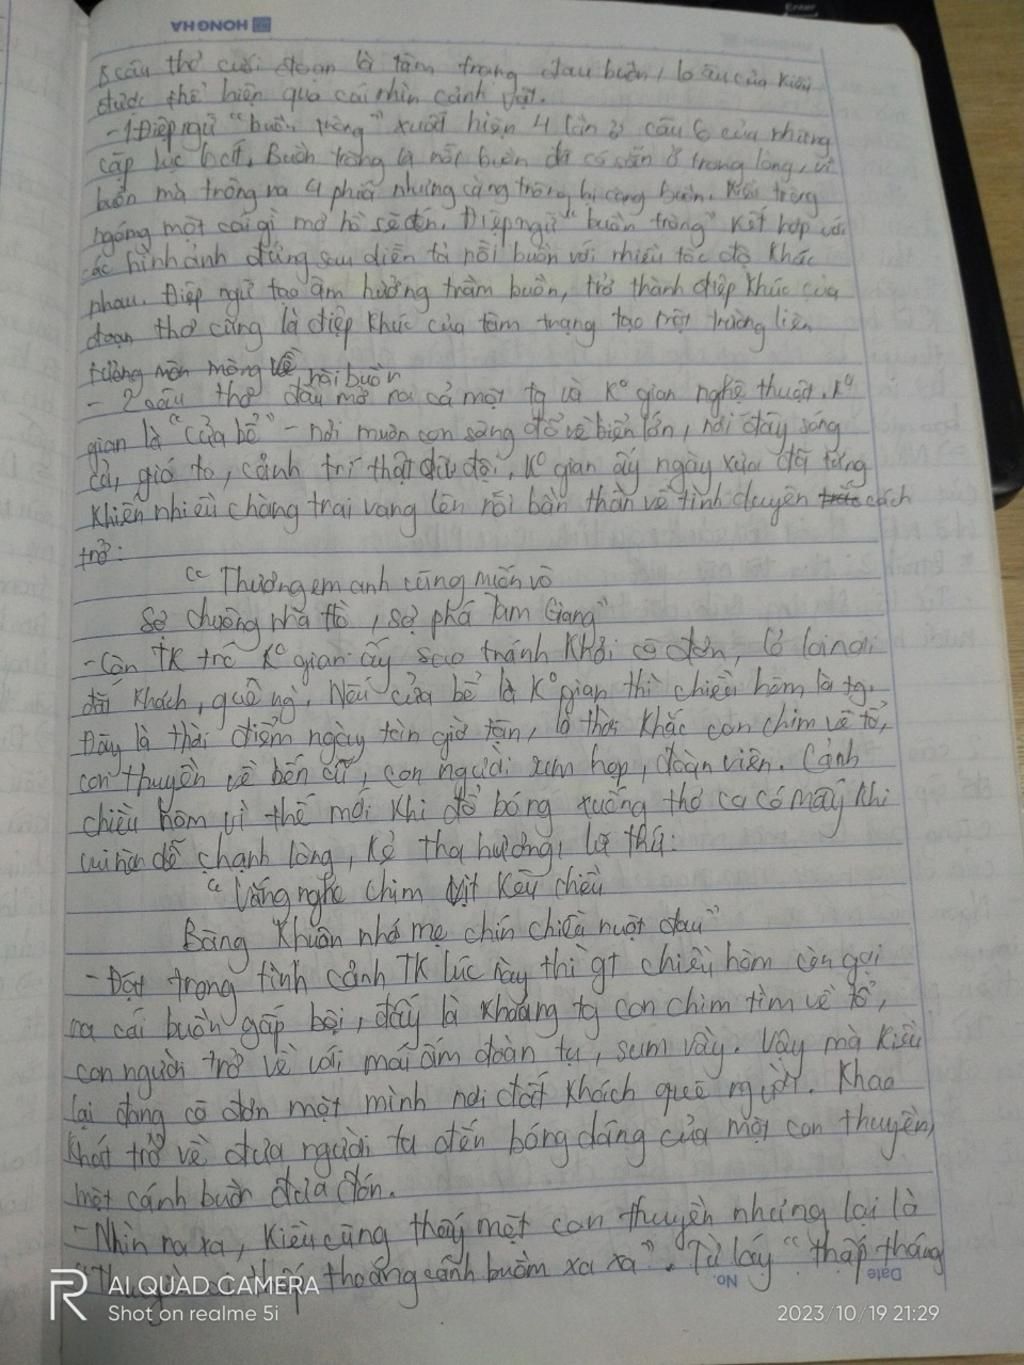 HONG HA
8 câu thơ cuối đoạn là tâm trạng đau buồn, lo âu của Kiều
được thể hiện qua cái nhìn cảnh vật.
- Điệp ngữ "buồn trông" xuất hiện 4 lần ở câu 6 của những
cặp lục bát. Buồn trông là nỗi buồn đã có sẵn ở trong lòng, vì
buồn mà trông ra 4 phía nhưng càng trông lại càng buồn. Kiều trông
ngóng một cái gì mơ hồ sẽ đến. Điệp ngữ "buồn trông" kết hợp với
các hình ảnh đứng sau diễn tả nỗi buồn với nhiều tốc độ khác
nhau. Điệp ngữ tạo âm hưởng trầm buồn, trở thành điệp khúc của
đoạn thơ cũng là điệp khúc của tâm trạng tạo một trường liên
tưởng mênh mông về nỗi buồn
- 2 câu thơ đầu mở ra cả một tg và K° gian nghệ thuật. K°
gian là "cửa bể" - nơi muôn con sông đổ về biển lớn, nơi đây sóng
cả, gió to, cảnh trí thật dữ dội. K° gian ấy ngày xưa đã từng
khiến nhiều chàng trai vang lên nỗi bần thần về tình duyên cách
trở:
"Thương em anh cũng muốn vô
Sợ chuông nhà Hồ, sợ phá Tam Giang"
- Còn TK trc K° gian ấy sao tránh khỏi cô đơn, lẻ loi nơi
đất khách, quê ng. Nếu cửa bể là K° gian thì chiều hôm là tg.
Đây là thời điểm ngày tàn giờ tận, là thời khắc con chim về tổ,
con thuyền về bến cũ, con người sum họp, đoàn viên. Cảnh
chiều hôm vì thế mỗi khi đổ bóng xuống thơ ca có mấy khi
vui nên dễ chạnh lòng, kẻ tha hương, lữ thứ:
"Vẳng nghe chim vịt kêu chiều
Bâng khuâng nhớ mẹ chín chiều ruột đau"
- Đặt trong tình cảnh TK lúc này thì gt chiều hôm còn gợi
ra cái buồn gấp bội, đấy là khoảng tg con chim tìm về tổ,
con người trở về với mái ấm đoàn tụ, sum vầy. Vậy mà Kiều
lại đang cô đơn một mình nơi đất khách quê người. Khao
khát trở về đưa người ta đến bóng dáng của một con thuyền,
một cánh buồm đưa đón.
- Nhìn ra xa, Kiều cũng thấy một con thuyền nhưng lại là
thấp thoáng cánh buồm xa xa". Từ láy "thấp thoáng
No. Date
R AI QUAD CAMERA
Shot on realme 5i
2023/10/19 21:29